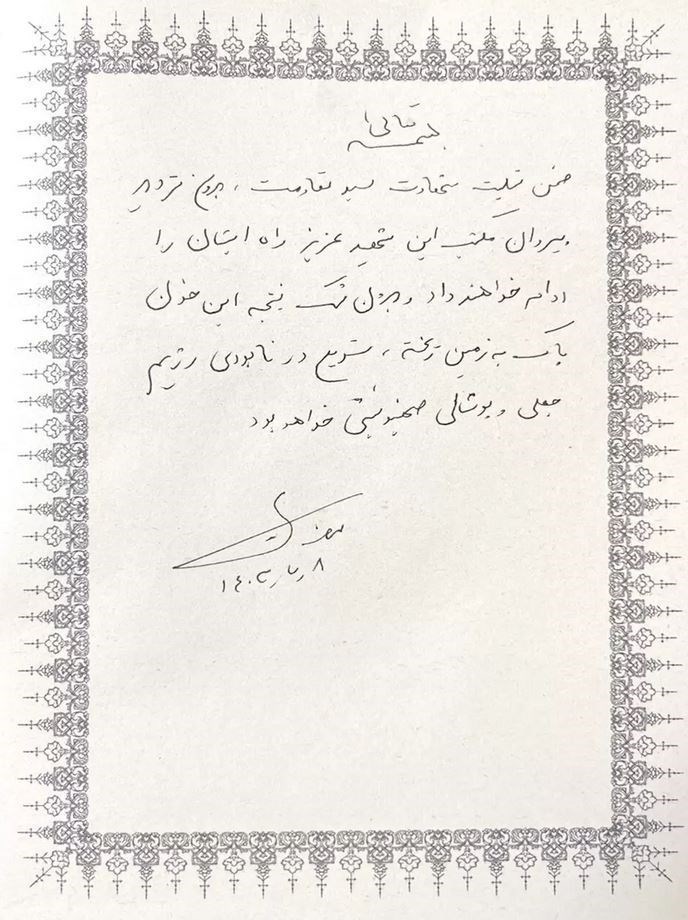 بسمه تعالی
ضمن تسلیت شهادت سید مقاومت، بدون تردید
پیروان مکتب این شهید عزیز راه ایشان را
ادامه خواهند داد و بدون شک نتیجه این خون
پاک به زمین ریخته، تسریع در نابودی رژیم
جعلی و پوشالی صهیونیستی خواهد بود